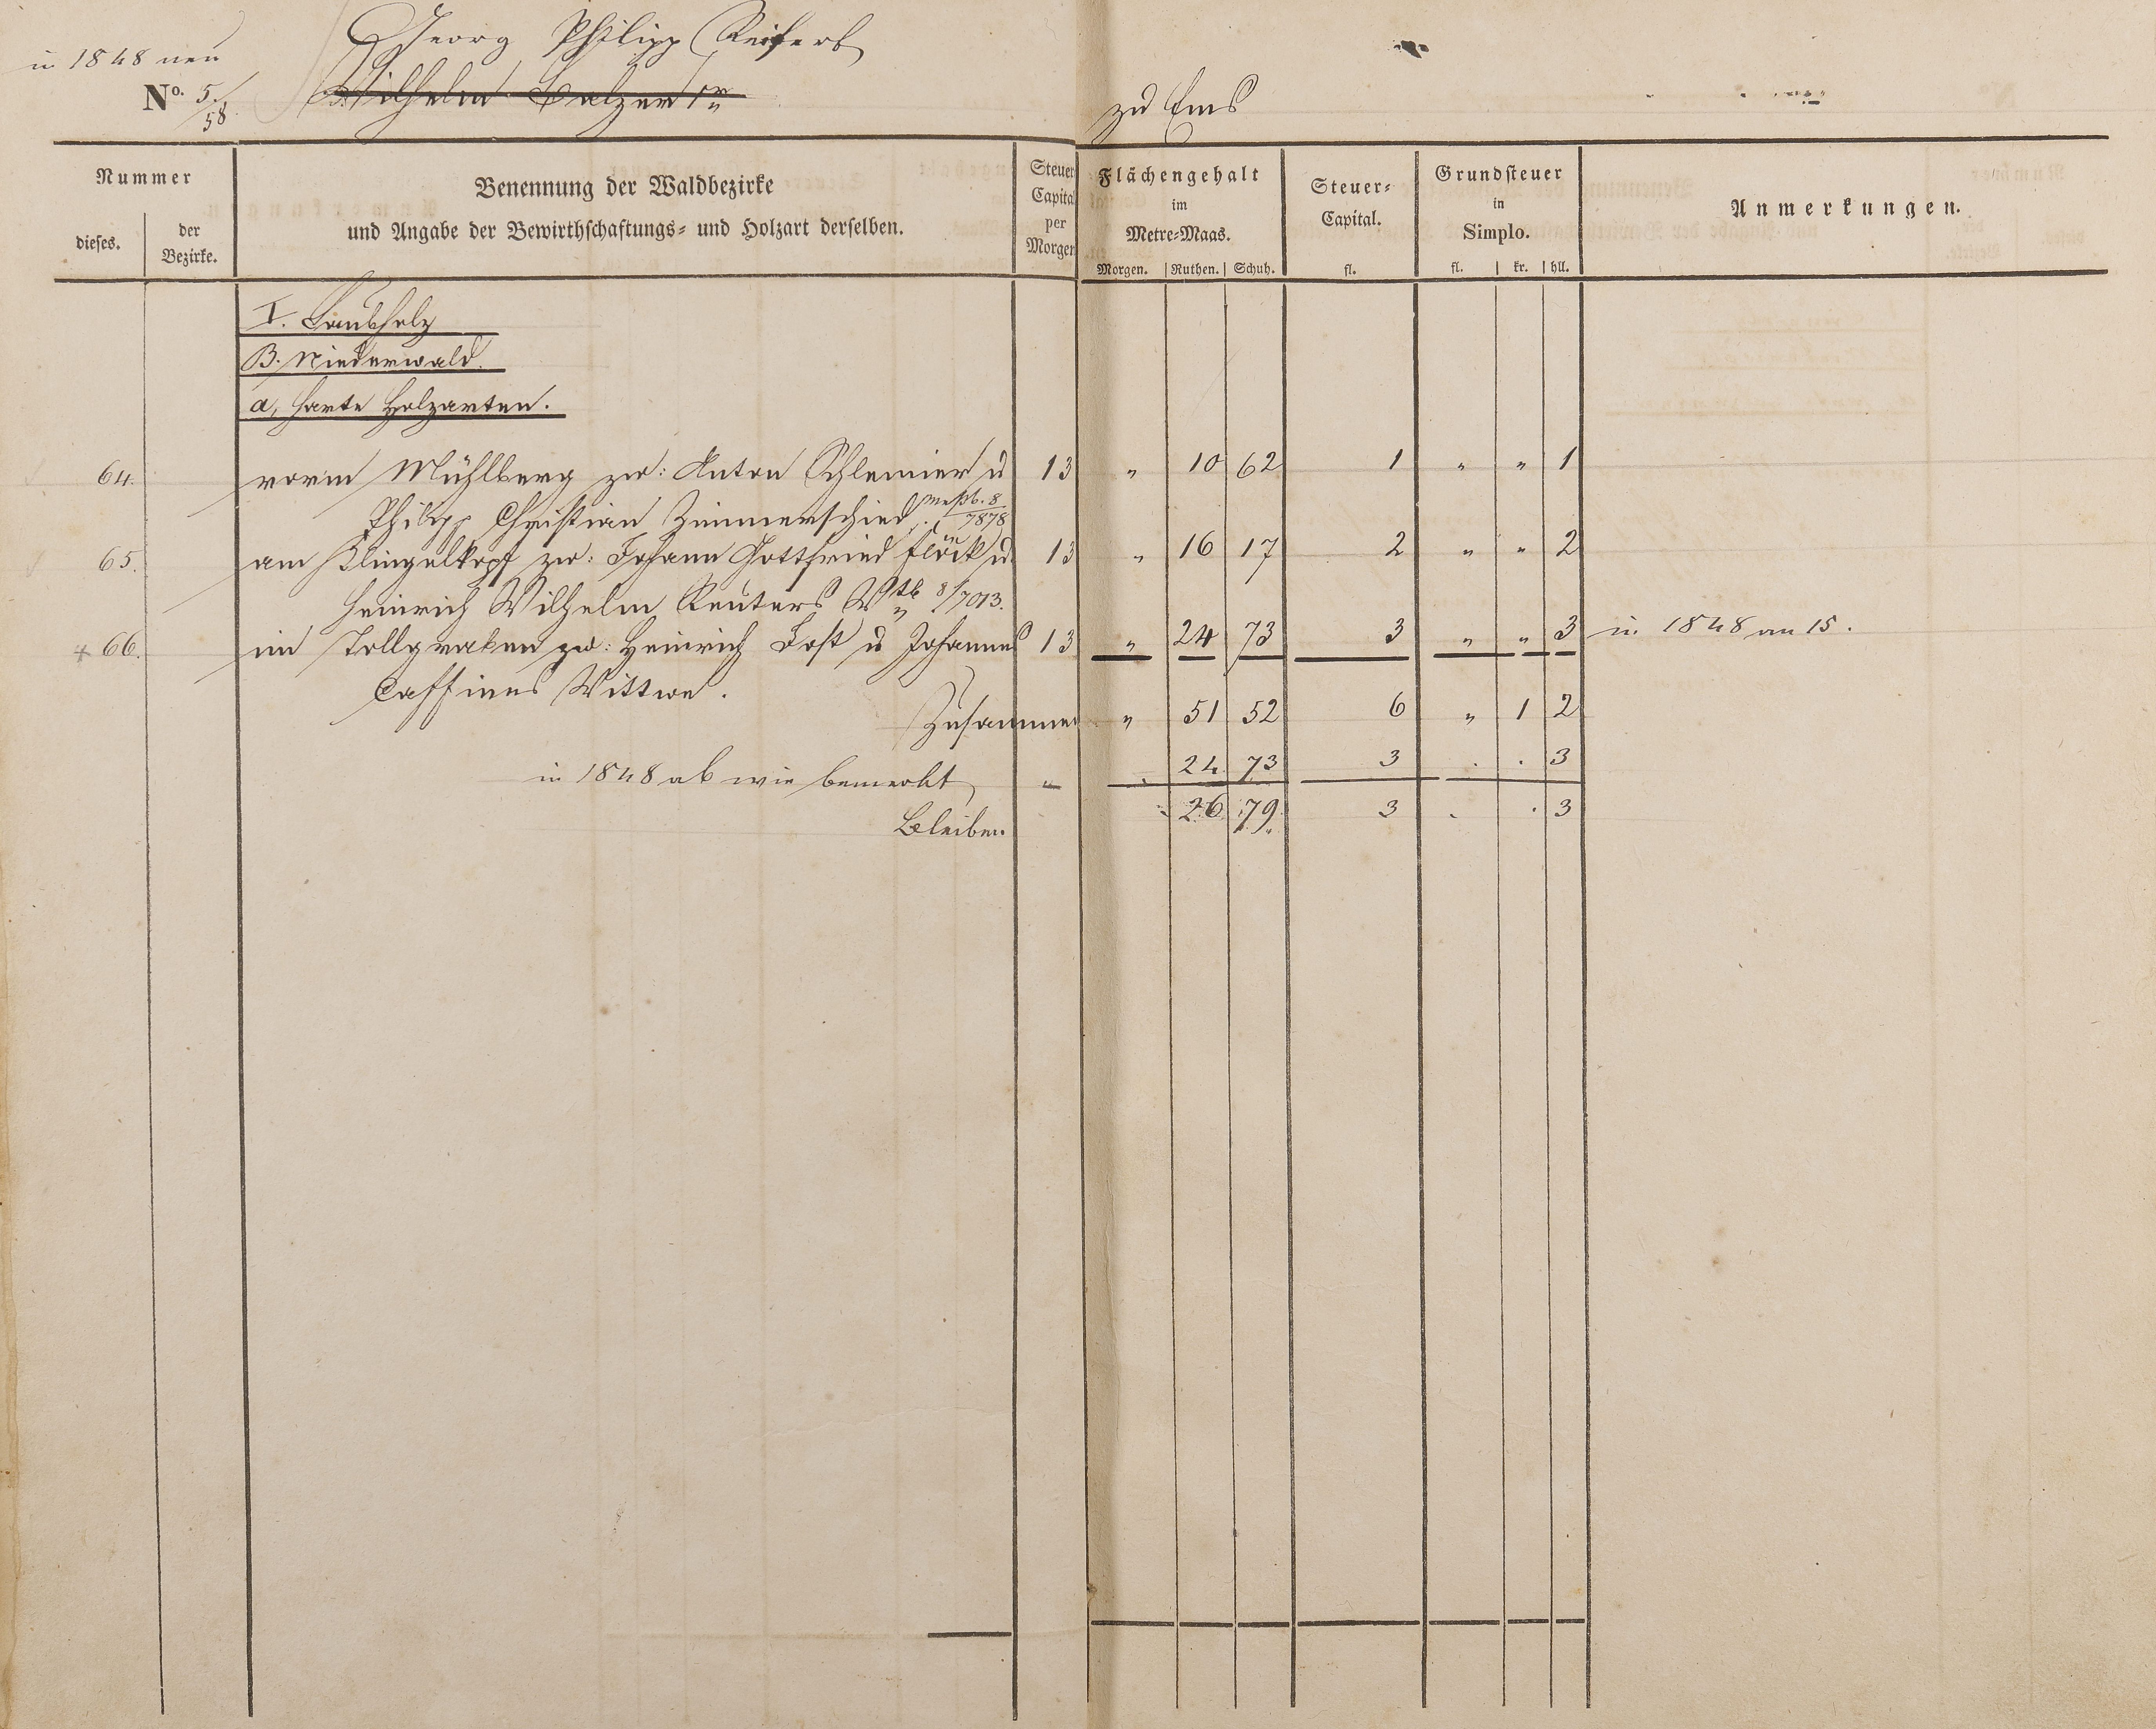 Georg Philipp Reifert
in 1848 neu
No. 5/58 Wilhelm Balzer 1r zu Ems
Nummer
dieses. der Bezirke.
Benennung der Waldbezirke
und Angabe der Bewirthschaftungs- und Holzart derselben.
Steuer Capital per Morgen
Flächengehalt
im
Metre-Maas.
Morgen. Ruthen. Schuh.
Steuer-
Capital.
fl.
Grundsteuer
in
Simplo.
fl. kr. hll.
Anmerkungen.
I. Laubholz
B. Niederwald.
a, harte Holzarten.
64. vorm Mühlberg zw: Anton Schlemier u 13 " 10 62 1 " " 1
Philipp Christian Zimmerschied 8/7878
65. am Klingelkopf zw: Johann Gottfried Flöck u. 13 " 16 17 2 " " 2
Heinrich Wilhelm Reuters Wtb 8/7013.
+ 66. im Tollgraben zw: Heinrich Jost u Johannes 13 " 24 73 3 " " 3 in 1848 an 15.
Caffines Wittwe.
Zusammen " 51 52 6 " 1 2
in 1848 ab wie bemerkt " . 24 73 3 . . 3
Bleiben 26 79 3 . . 3